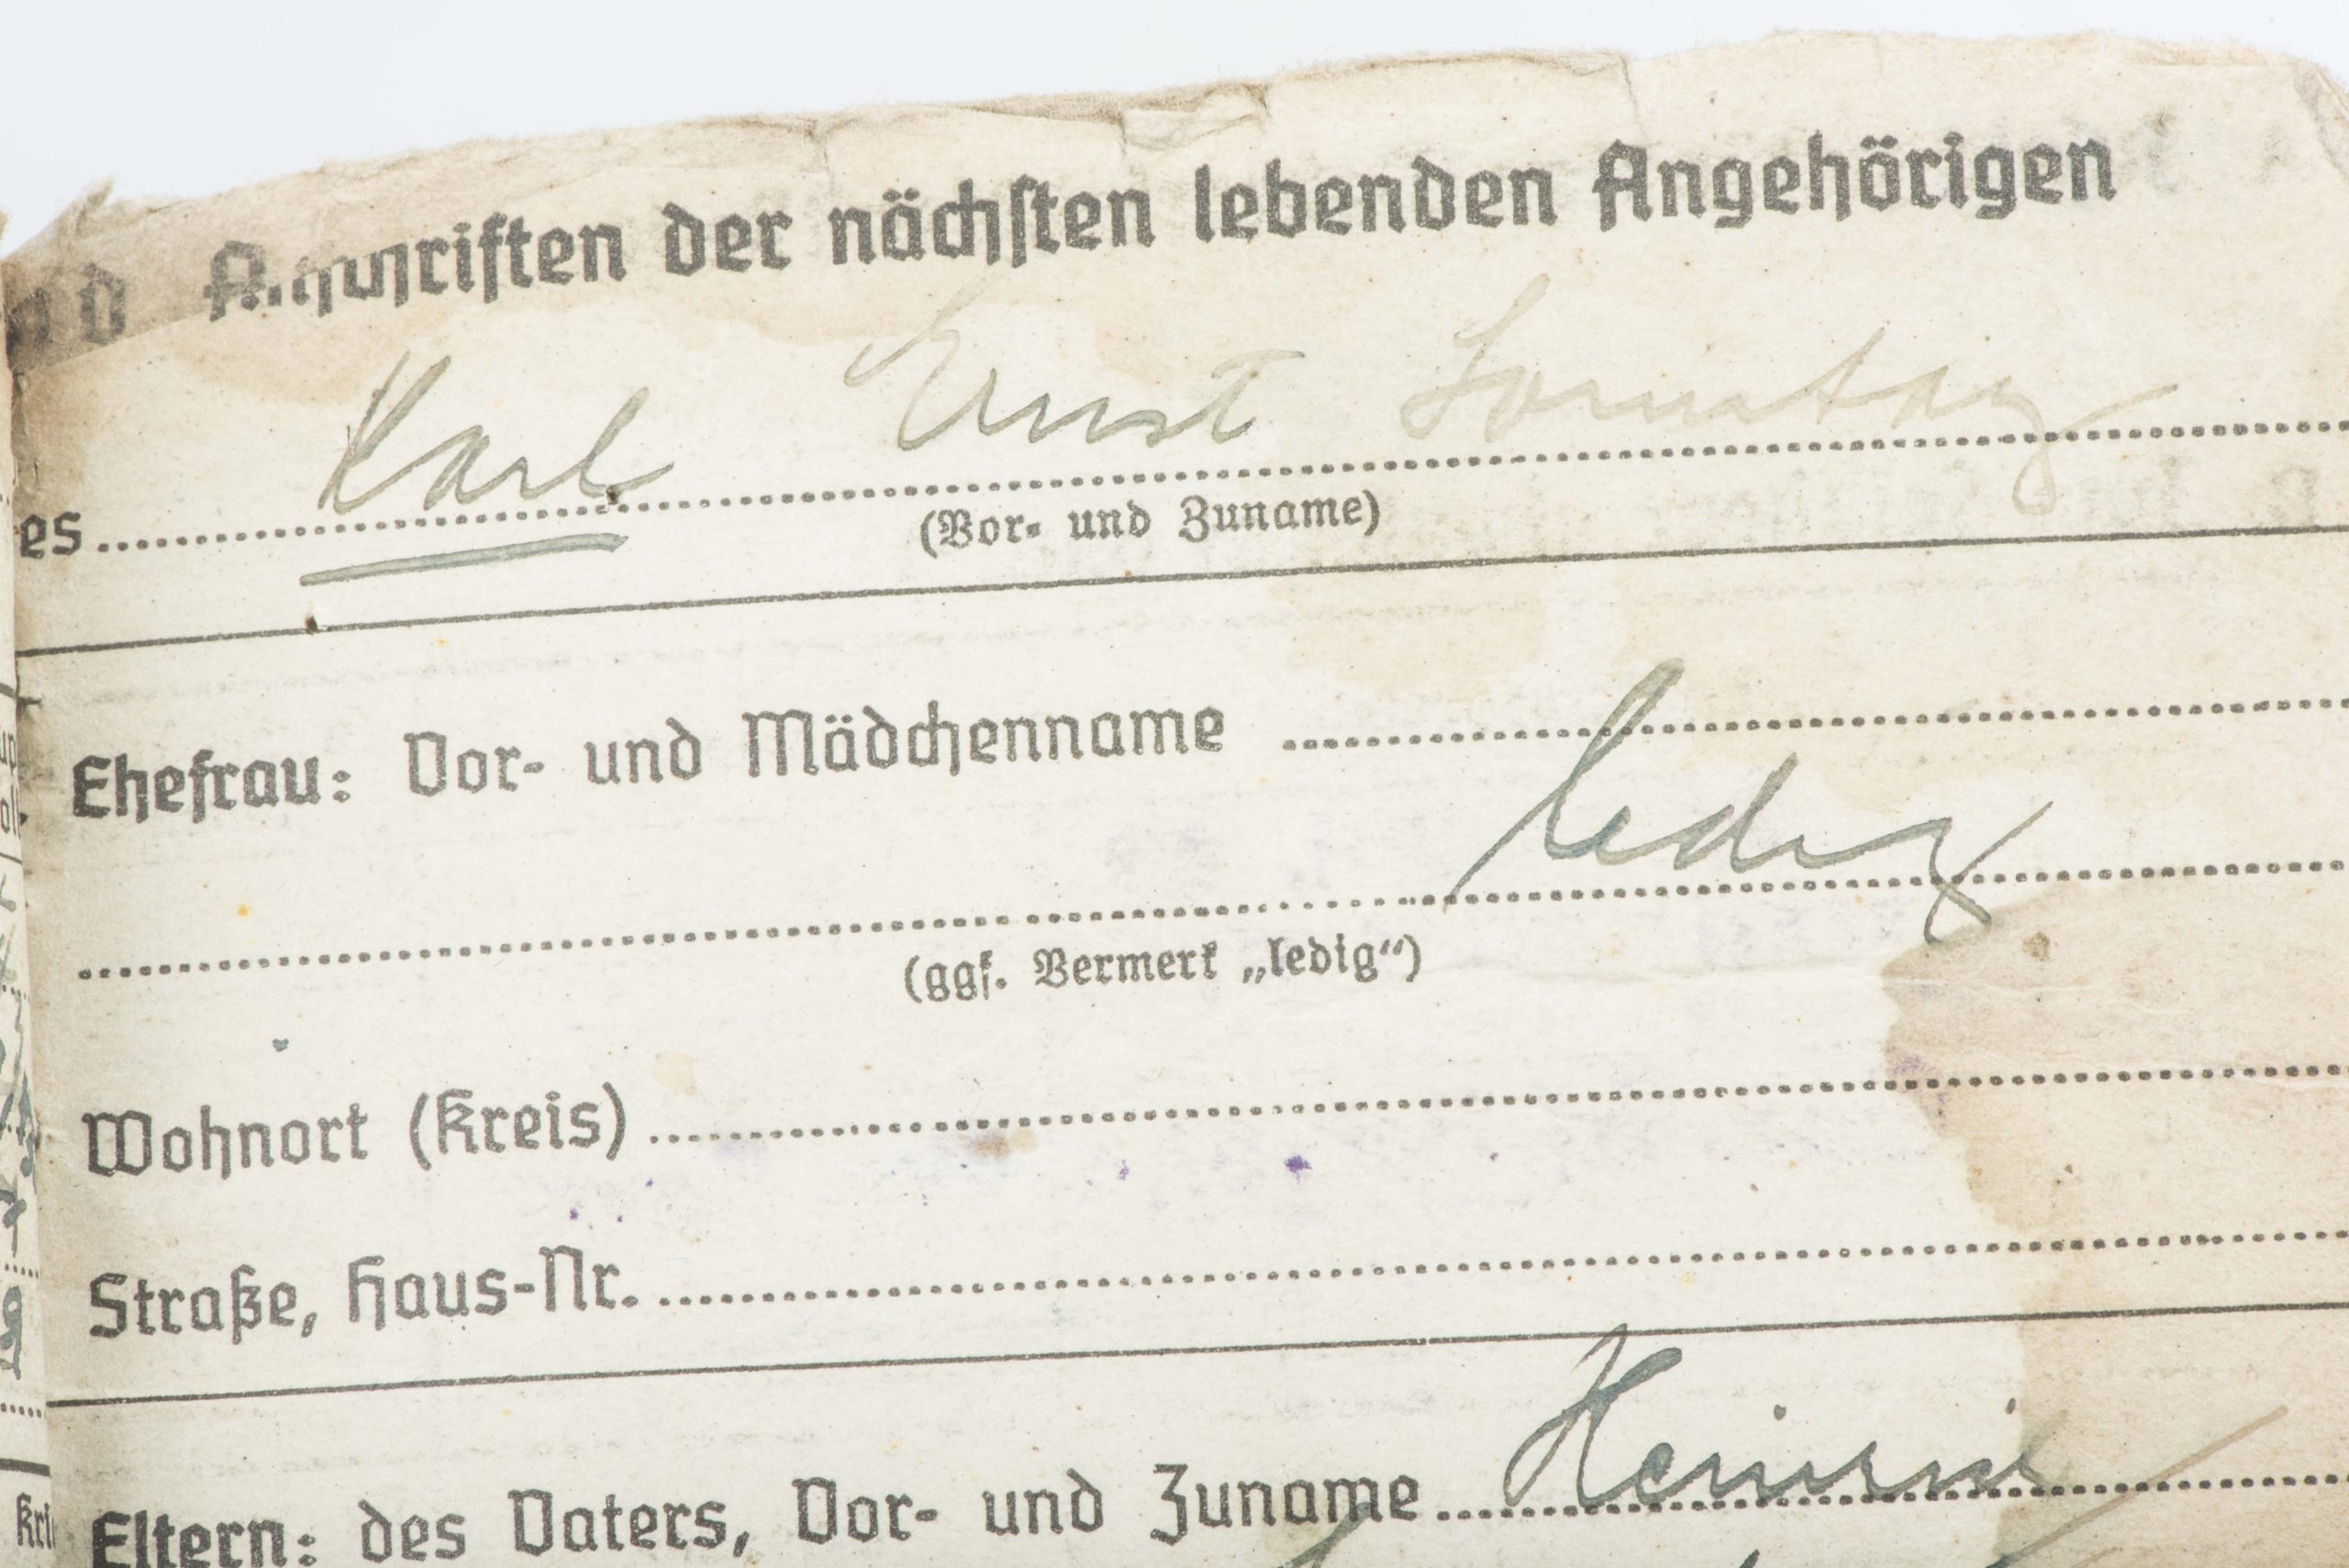 nd Anschriften der nächsten lebenden Angehörigen
es Karl Ernst Sonntag
(Vor- und Zuname)
Ehefrau: Vor- und Mädchenname
ledig
(ggf. Vermerk „ledig“)
Wohnort (Kreis)
Straße, Haus-Nr.
Eltern: des Vaters, Vor- und Zuname Heinrich